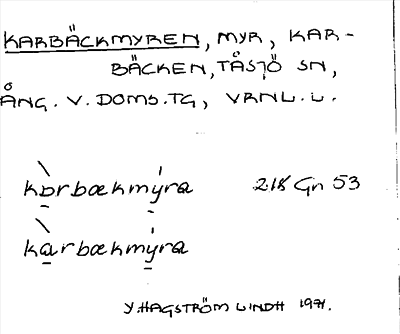 KARBÄCKMYREN, MYR, KAR-
BÄCKEN, TÅSJÖ SN,
ÅNG. V. DOMS. TG, VRNL. L.
kɒrbækmýra 218 Gn 53
karbækmýra
Y. HAGSTRÖM LINDH 1971.